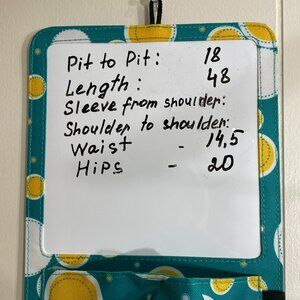 Pit to Pit: 18
Length: 48
Sleeve from shoulder:
Shoulder to shoulder:
Waist - 14,5
Hips - 20